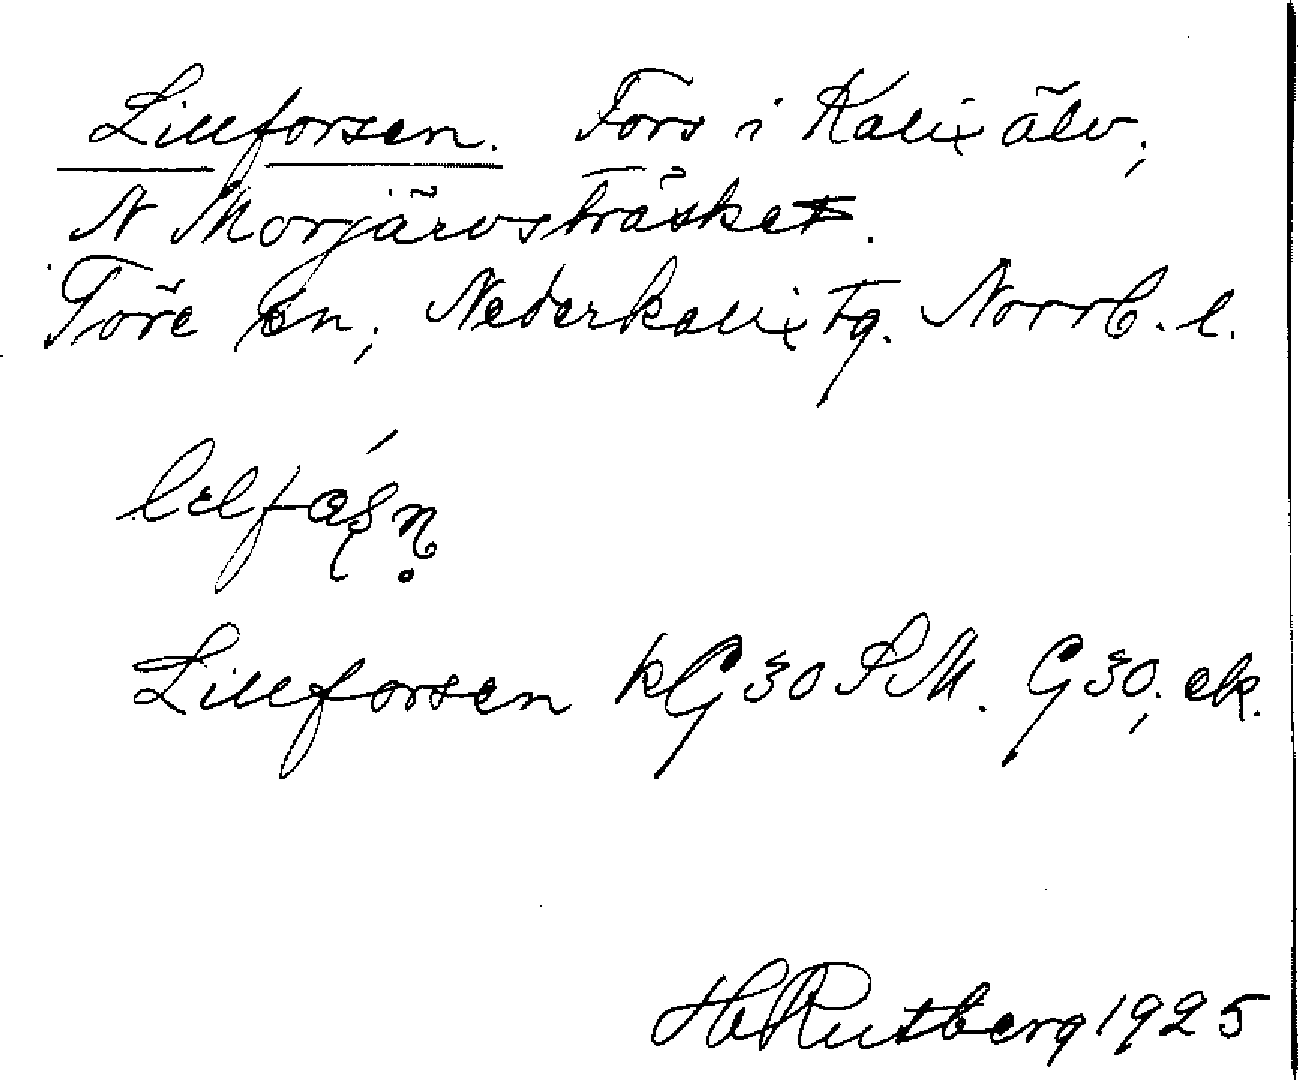 Lillforsen. Fors i Kalix älv,
N Morjärvsträsket.
Töre sn, Nederkalix tg. Norrb. l.
Lillforsen kG30 SM. G30, ek.
H Rutberg 1925